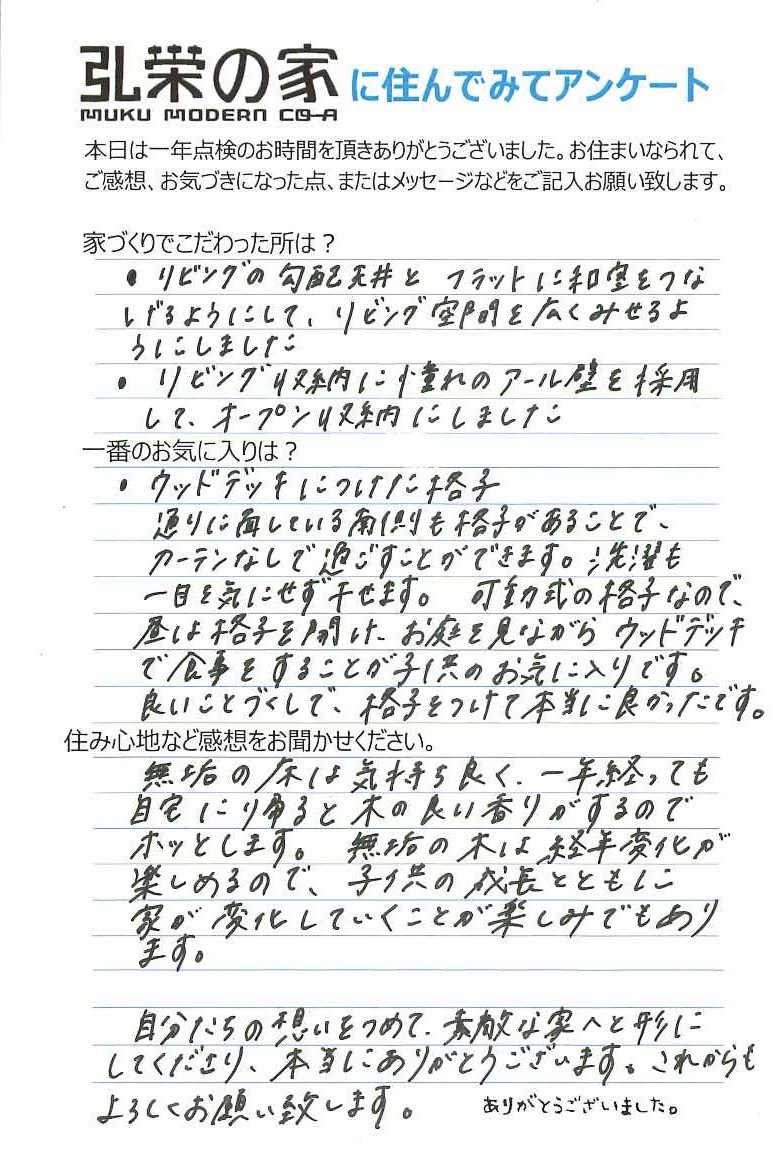 弘栄の家 に住んでみてアンケート
MUKU MODERN CO-A
本日は一年点検のお時間を頂きありがとうございました。お住まいなられて、
ご感想、お気づきになった点、またはメッセージなどをご記入お願い致します。
家づくりでこだわった所は？
・リビングの勾配天井と フラットに和室をつな
げるようにして、リビング空間を広くみせるよ
うにしました
・リビング収納に憧れのアール壁を採用
して、オープン収納にしました
一番のお気に入りは？
・ウッドデッキにつけた格子
通りに面している南側も格子があることで、
カーテンなしで過ごすことができます。洗濯も
一目を気にせず干せます。 可動式の格子なので、
昼は格子を開け、お庭を見ながら ウッドデッキ
で食事をすることが子供のお気に入りです。
良いことづくしで、格子をつけて本当に良かったです。
住み心地など感想をお聞かせください。
無垢の床は気持ち良く、一年経っても
自宅にり帰ると木の良い香りがするので
ホッとします。 無垢の木は経年変化が
楽しめるので、子供の成長とともに
家が変化していくことが楽しみでもあり
ます。
自分たちの想いをつめて、素敵な家へと形に
してくださり、本当にありがとうございます。これからも
よろしくお願い致します。 ありがとうございました。